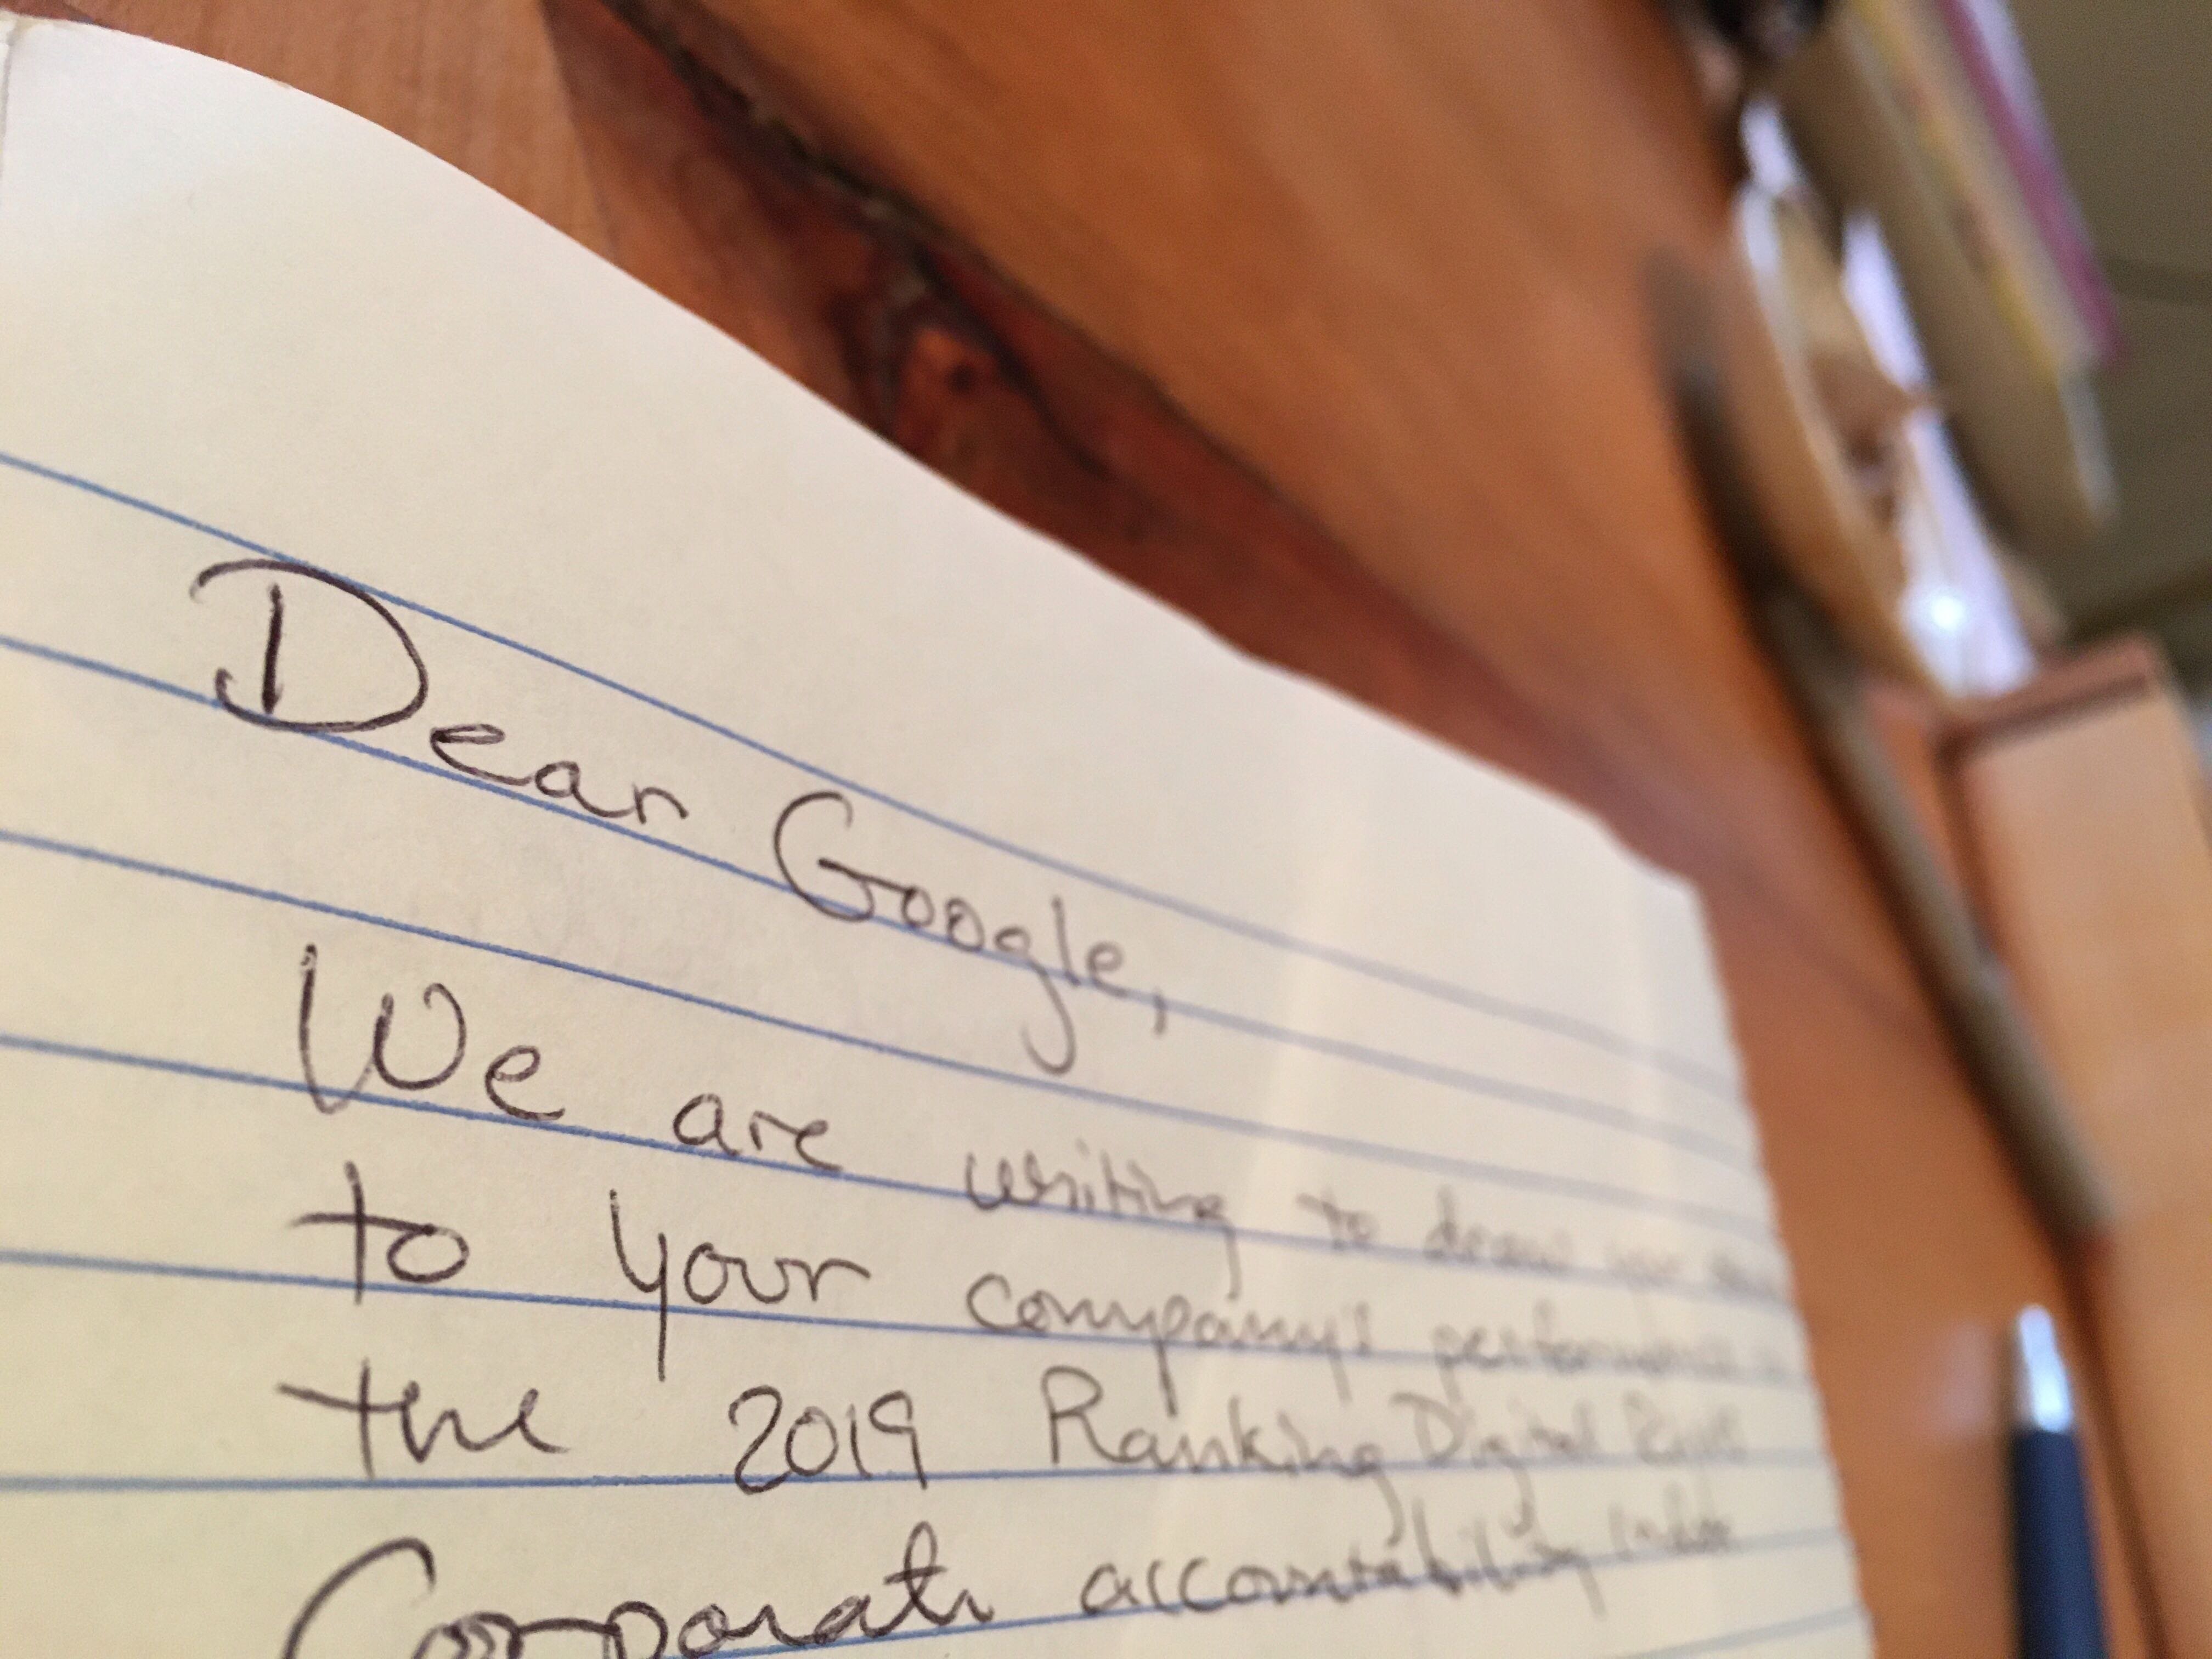 Dear Google,
We are writing to draw your
to your company's performance
the 2019 Ranking Digital Rights
Corporate accountability Index